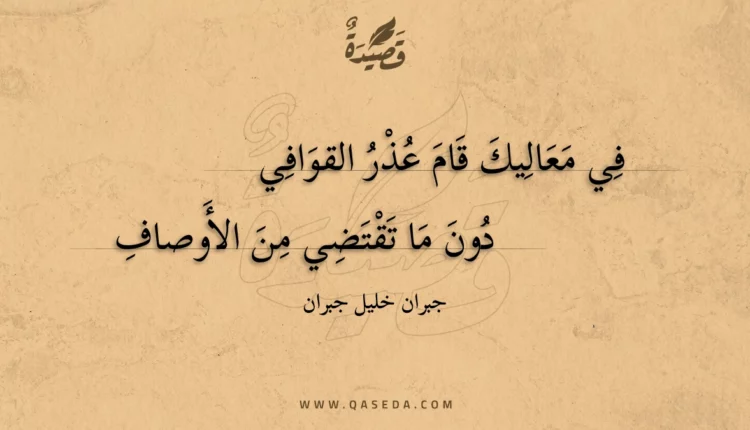 قَصِيْدَةٌ
فِي مَعَالِيكَ قَامَ عُذْرُ القوَافِي
دُونَ مَا تَقْتَضِي مِنَ الأَوصافِ
جبران خليل جبران
WWW.QASEDA.COM